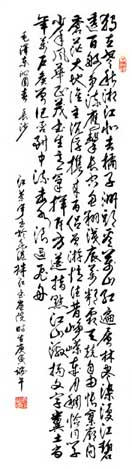 独立寒秋湘江北去橘子洲头看万山红遍层林尽染漫江碧
透百舸争流鹰击长空鱼翔浅底万类霜天竞自由怅寥廓问
苍茫大地谁主沉浮携来百侣曾游忆往昔峥嵘岁月稠恰同学
少年风华正茂书生意气挥斥方遒指点江山激扬文字粪土当
年万户侯曾记否到中流击水浪遏飞舟
毛泽东沁园春长沙